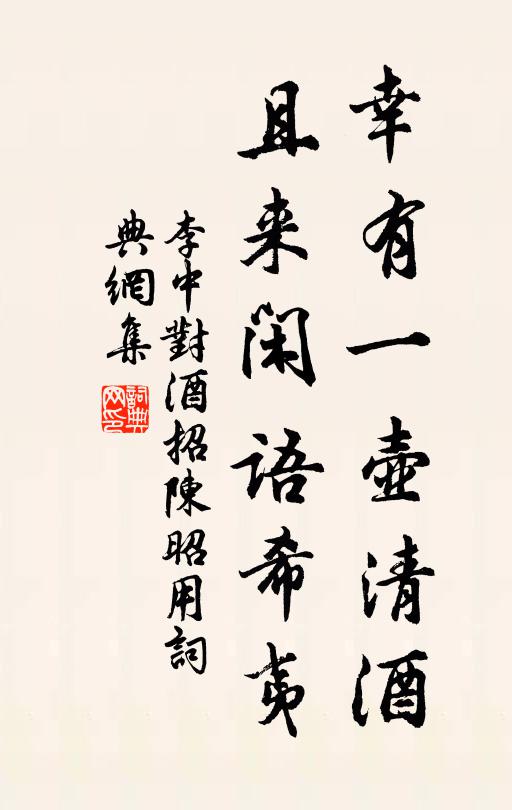 幸有一壺清酒
且来闲語希夷
李中對酒招陳昭用詞
典網集
詞典网印